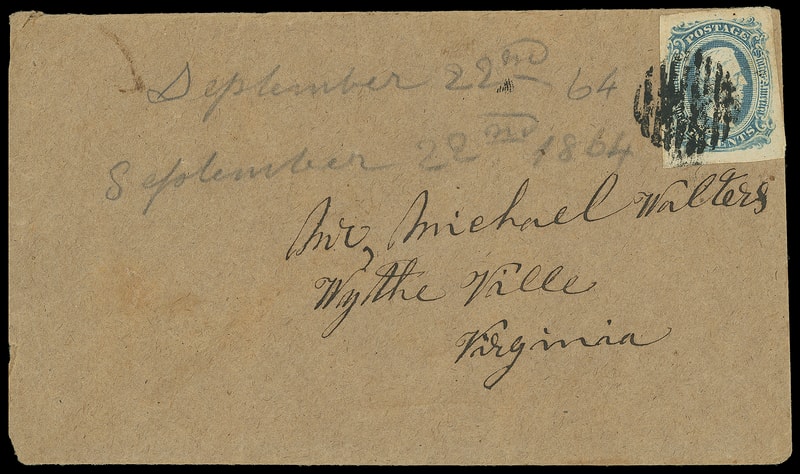 September 22nd 64
September 22nd 1864
Mr, Michael Walters
Wythe Ville
Virginia
POSTAGE
CENTS